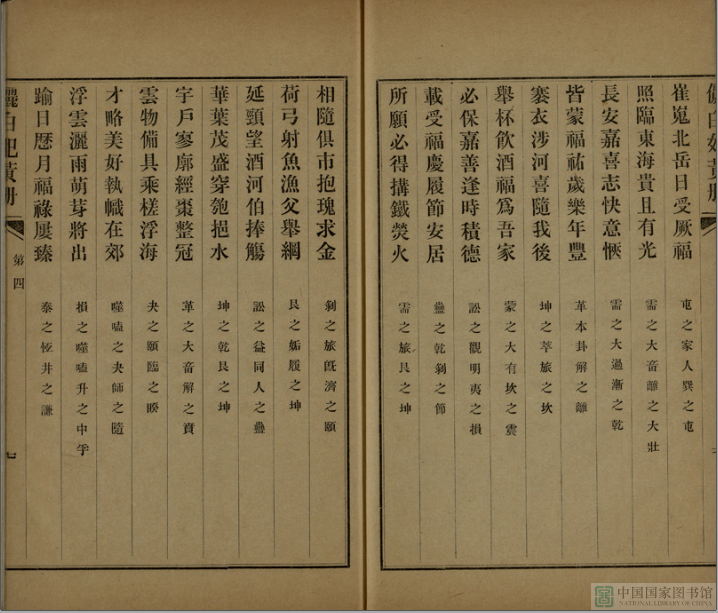 崔嵬北岳日受厥福 屯之家人巽之屯
照臨東海貴且有光 需之大畜離之大壯
長安嘉喜志快意愜 需之大過漸之乾
皆蒙福祐歲樂年豐 革本卦解之離
褰衣涉河喜隨我後 坤之萃旅之坎
舉杯飲酒福爲吾家 蒙之大有坎之震
必保嘉善逢時積德 訟之觀明夷之損
載受福慶履節安居 蠱之乾剝之節
所願必得搆鐵熒火 需之旅艮之坤
相隨俱市抱瑰求金 剝之旅旣濟之頤
荷弓射魚漁父舉綱 艮之姤履之坤
延頸望酒河伯捧觴 訟之益同人之蠱
華葉茂盛穿匏挹水 坤之乾艮之坤
宇戶寥廓經棗整冠 革之大畜解之賁
雲物備具乘槎浮海 夬之頤臨之睽
才略美好執幟在郊 噬嗑之夬師之隨
浮雲灑雨萌芽將出 損之噬嗑升之中孚
踰日歷月福祿屢臻 泰之恆井之謙
第四
七
中国国家图书馆
NATIONAL LIBRARY OF CHINA